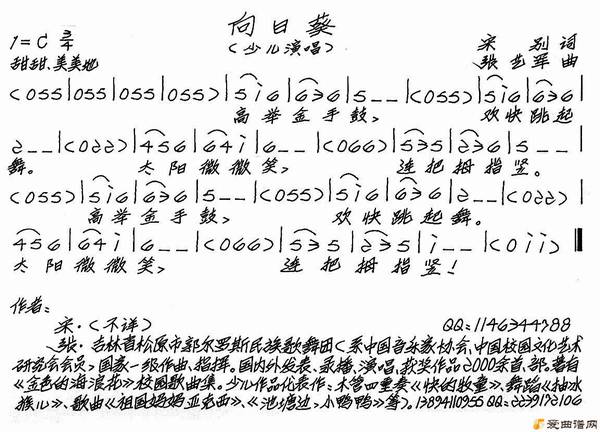 向日葵
1=C 3/4
（少儿演唱）
宋 别 词
甜甜、美美地
张艺军 曲
(055|055|055|055)|5i6|636|5--|(055)|5i6|636|
高举金手鼓， 欢快跳起
2--|(022)|456|64i|6--|(066)|535|236|5--|
舞。 太阳微微笑， 连把拇指竖。
(055)|5i6|636|5--|(055)|5i6|636|2--|(022)|
高举金手鼓， 欢快跳起舞。
456|64i|6--|(066)|535|235|i--|(0ii)‖
太阳微微笑， 连把拇指竖！
作者：
宋·（不详） QQ：1146344788
张·吉林省松原市郭尔罗斯民族歌舞团（系中国音乐家协会、中国校园文化艺术
研究会会员，国家一级作曲、指挥。国内外发表、录播、演唱、获奖作品2000余首、部。著有
《金色的海浪花》校园歌曲集。少儿作品代表作：木管四重奏《快的牧童》、舞蹈《抽水
猴儿》、歌曲《祖国妈妈亚克西》、《池塘边，小鸭鸭》等）。13894110955 QQ：2239172106
爱曲谱网